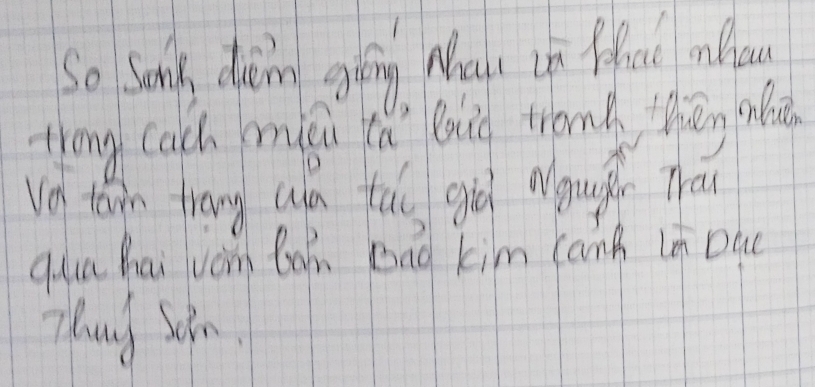 So Sánh điểm giống nhau và khác nhau
trong cách miêu tả bức tranh thiên nhiên
Và tâm trạng của tác giả Nguyễn Trãi
qua hai văn bản Bảo kim cảnh và Dục
Thuý Sơn.